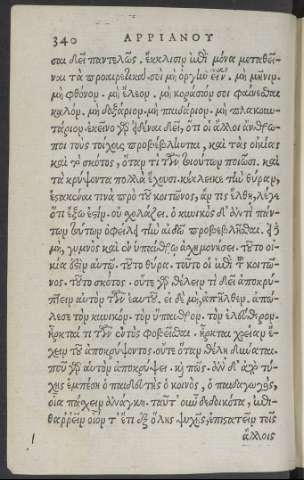 340 ΑΡΡΙΑΝΟΥ
σαι δεῖ παντελῶς. ἔκκλισιν ἐπὶ μόνα μεταθεῖ-
ναι τὰ προαιρετικά· σοὶ μὴ ὀργὴν εἶναι. μὴ μῆνιν.
μὴ φθόνον. μὴ ἔλεον. μὴ κοράσιόν σοι φαίνεσθαι
καλόν. μὴ δοξάριον. μὴ παιδάριον. μὴ πλακουν-
τάριον. ἐκεῖνο γὰρ εἰδέναι δεῖ, ὅτι οἱ ἄλλοι ἄνθρω-
ποι τοὺς τοίχους προβέβληνται, καὶ τὰς οἰκίας
καὶ τὸ σκότος, ὅταν τι τῶν τοιούτων ποιῶσι. καὶ
τὰ κρύψοντα πολλὰ ἔχουσι. κέκλεικε τὴν θύραν,
ἕστακέναι τινὰ πρὸ τοῦ κοιτῶνος, ἄν τις ἔλθῃ, λέγε
ὅτι ἔξω ἐστίν. οὐ σχολάζει. ὁ κυνικὸς δ' ἀντὶ πάν-
των τούτων ὀφείλει τὴν αἰδῶ προβεβλῆσθαι. εἰ δὲ
μὴ, γυμνὸς καὶ ἐν ὑπαίθρῳ ἀσχημονήσει. τοῦτο οἰ-
κία ἐστὶν αὐτῷ. τοῦτο θύρα. τοῦτο οἱ ἐπὶ τοῦ κοιτῶ-
νος. τοῦτο σκότος. οὔτε γὰρ θέλειν τι δεῖ ἀποκρύ-
πτειν αὐτὸν τῶν ἑαυτοῦ. εἰ δὲ μὴ, ἀπῆλθεν. ἀπώ-
λεσε τὸν κυνικόν. τὸν ὕπαιθρον. τὸν ἐλεύθερον.
ἦρκταί τι τῶν ἐκτὸς φοβεῖσθαι. ἦρκται χρείαν ἔ-
χειν τοῦ ἀποκρύψοντος. οὔτε ὅταν θέλῃ δύναται.
ποῦ γὰρ αὐτὸν ἀποκρύψει. καὶ πῶς. ἂν δ' ἀπὸ τύ-
χης ἐμπέσῃ ὁ παιδευτὴς ὁ κοινὸς, ὁ παιδαγωγὸς,
οἷα πάσχειν ἀνάγκη. ταῦτ' οὖν δεδοικότα, ἐπι-
θαρρεῖν οἷόν τ' ἔτι ἐξ ὅλης ψυχῆς, ἐπιστατεῖν τοῖς
ἄλλοις